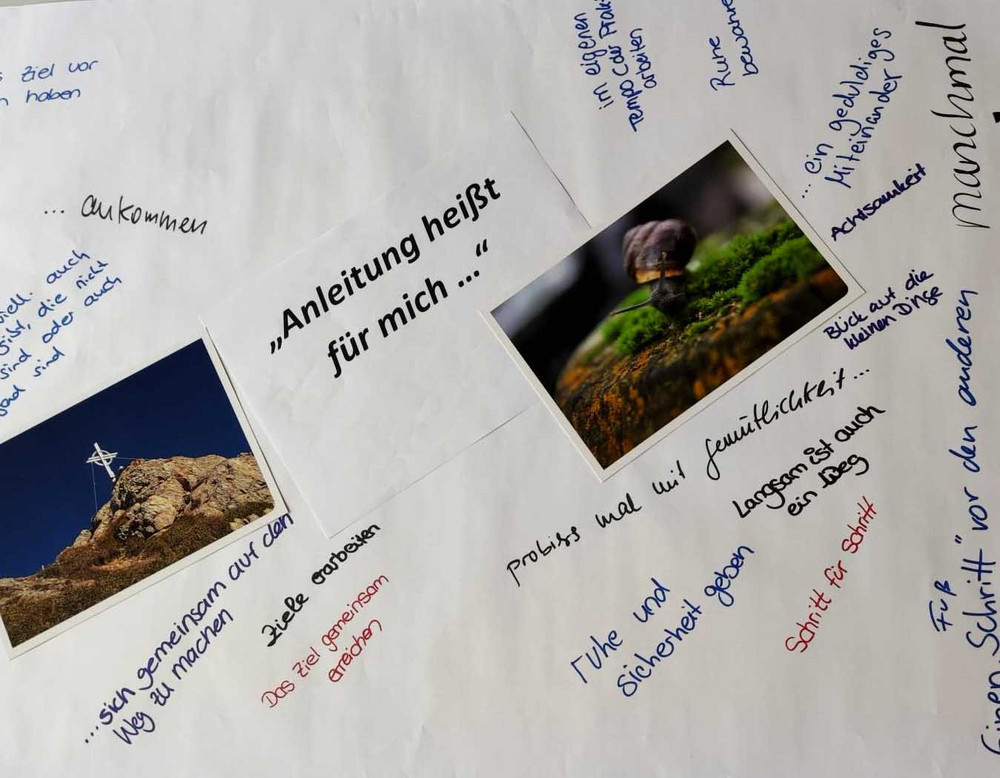 Ziel vor
haben
... ankommen
auch
gibt, die nicht
sind oder auch
sind
„Anleitung heißt
für mich ...“
im eigenen
Tempo der
arbeiten
Ruhe
bewahren
... ein geduldiges
Miteinander
Achtsamkeit
Blick auf die
kleinen Dinge
manchmal
probiers mal mit Gemütlichkeit...
Langsam ist auch
ein Weg
Schritt für Schritt
Ruhe und
Sicherheit geben
...sich gemeinsam auf den
Weg zu machen
Ziele erarbeiten
Das Ziel gemeinsam
erreichen
Einen „Schritt" vor den anderen
Fuß